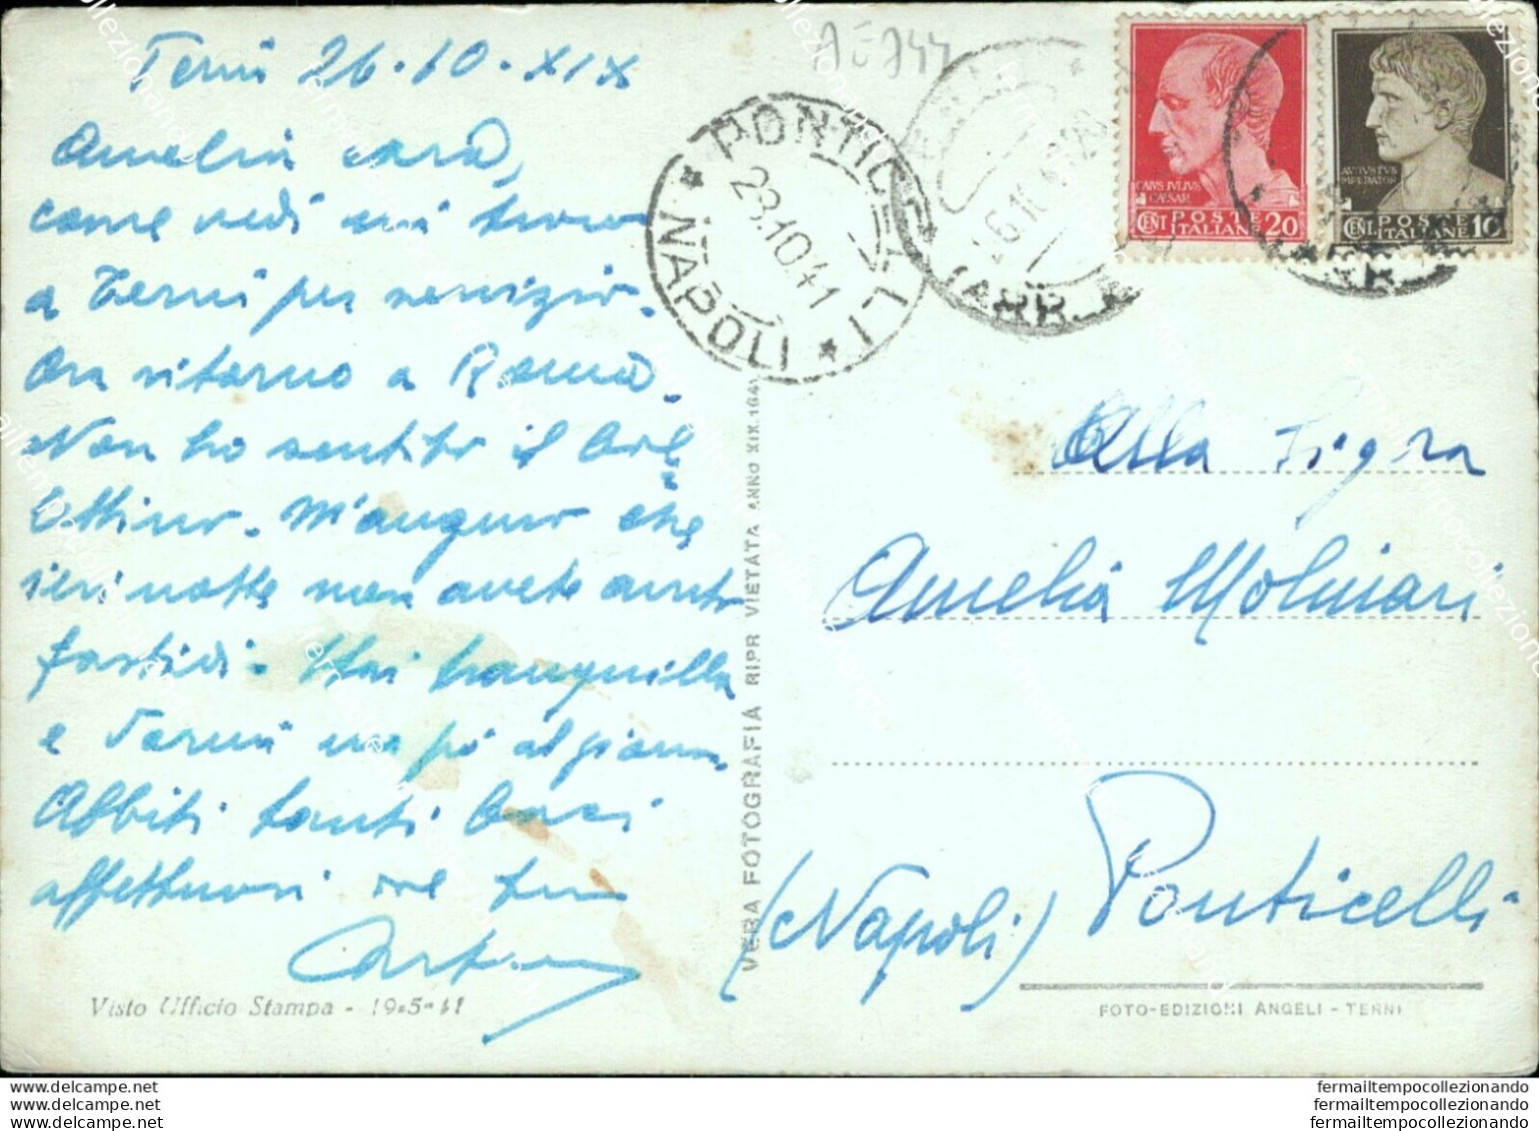 Terni 26·10·XIX
Amelia cara,
come vedi mi trovo
a Terni per servizio.
Ora ritorno a Roma.
Non ho sentito il
M'auguro che
ieri notte non avete avuto
fastidi. Stai tranquilla
e dormi un po' al giorno.
Abbiti tanti baci
affettuosi dal tuo
Visto Ufficio Stampa - 19-5-41
VERA FOTOGRAFIA RIPR VIETATA ANNO XIX.1941
PONTICELLI
28.10.41
NAPOLI
(ARR
CAIVS IVLIVS
CAESAR
CENT POSTE ITALIANE 20
AVGVSTVS
IMPERATOR
CENT. POSTE ITALIANE 10
Alla Sig.ra
Amelia Molinari
Ponticelli
(Napoli)
FOTO-EDIZIONI ANGELI - TERNI
www.delcampe.net
www.delcampe.net
www.delcampe.net
fermailtempocollezionando
fermailtempocollezionando
fermailtempocollezionando